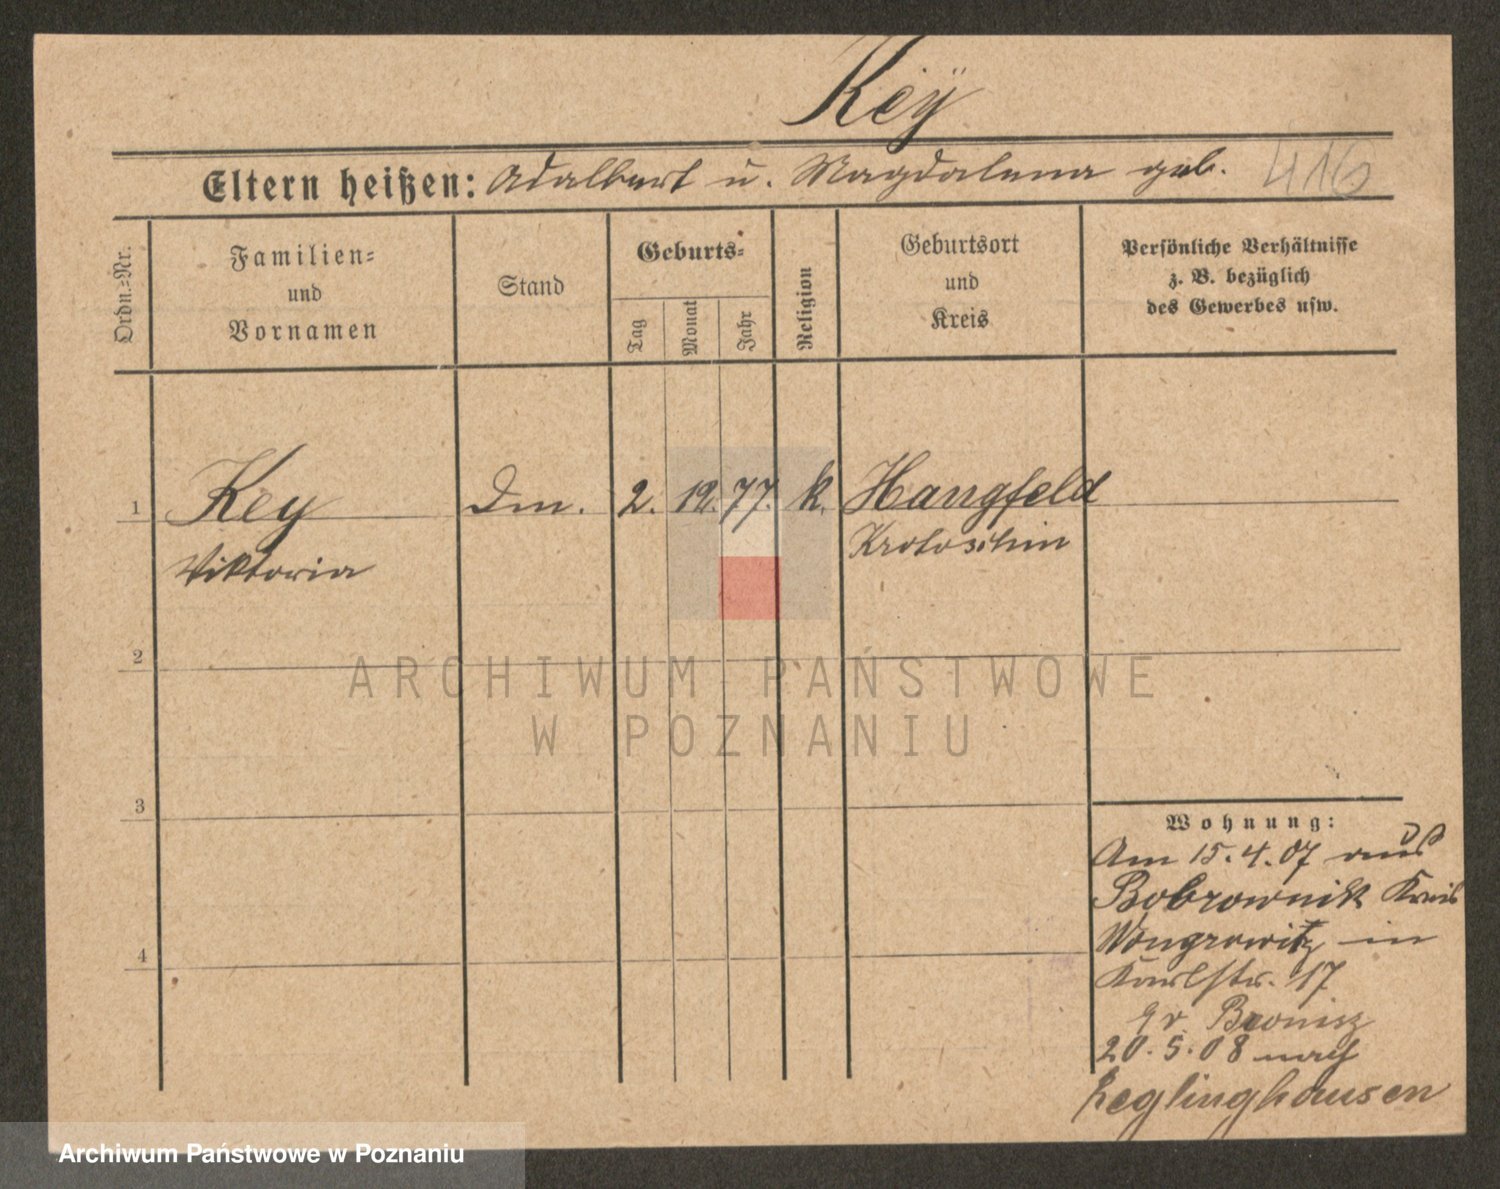 Keÿ
Eltern heißen: Adalbert u. Magdalena geb. 416
Ordn.-Nr.
Familien-
und
Vornamen
Stand
Geburts-
Tag
Monat
Jahr
Religion
Geburtsort
und
Kreis
Persönliche Verhältnisse
z. B. bezüglich
des Gewerbes usw.
1 Key Dm. 2. 12. 77. k. Hangfeld
Viktoria Krotoschin
2
ARCHIWUM PAŃSTWOWE
W POZNANIU
3
Wohnung:
Am 15.4.07 aus
Bobrownik Kreis
Wongrowitz in
Karlstr. 17
Bronisz
20.5.08 nach
Reglinghausen
4
Archiwum Państwowe w Poznaniu